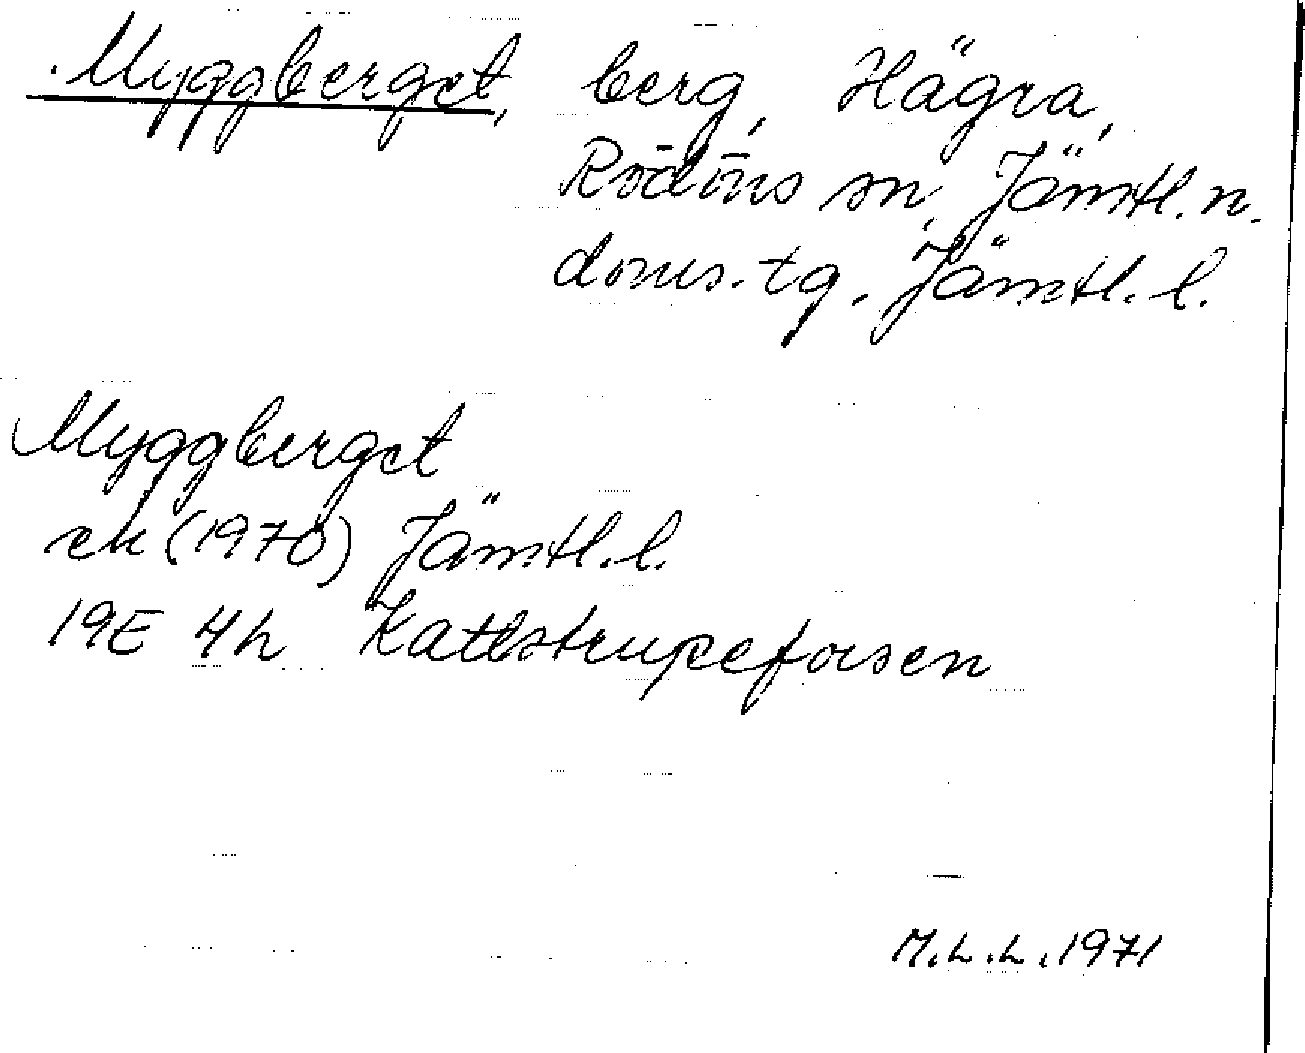 Myggberget, berg, Hägra,
Rödöns sn, Jämtl. n.
doms. tg. Jämtl. l.
Myggberget
ek (1970) Jämtl. l.
19E 4h Kattstrupeforsen
M.L.L. 1971